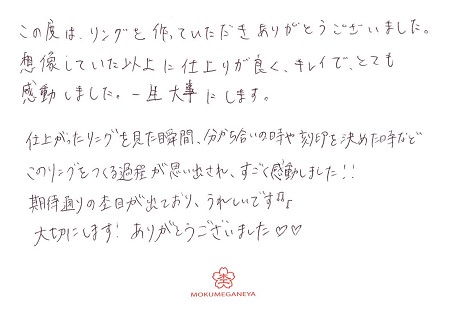 この度は、リングを作っていただきありがとうございました。
想像していた以上に仕上りが良く、キレイで、とても
感動しました。一生大事にします。
仕上がったリングを見た瞬間、分かち合いの時や刻印を決めた時など
このリングをつくる過程が思い出され、すごく感動しました!!
期待通りの杢目が出ており、うれしいです♫♪
大切にします! ありがとうございました♡♡
MOKUMEGANEYA